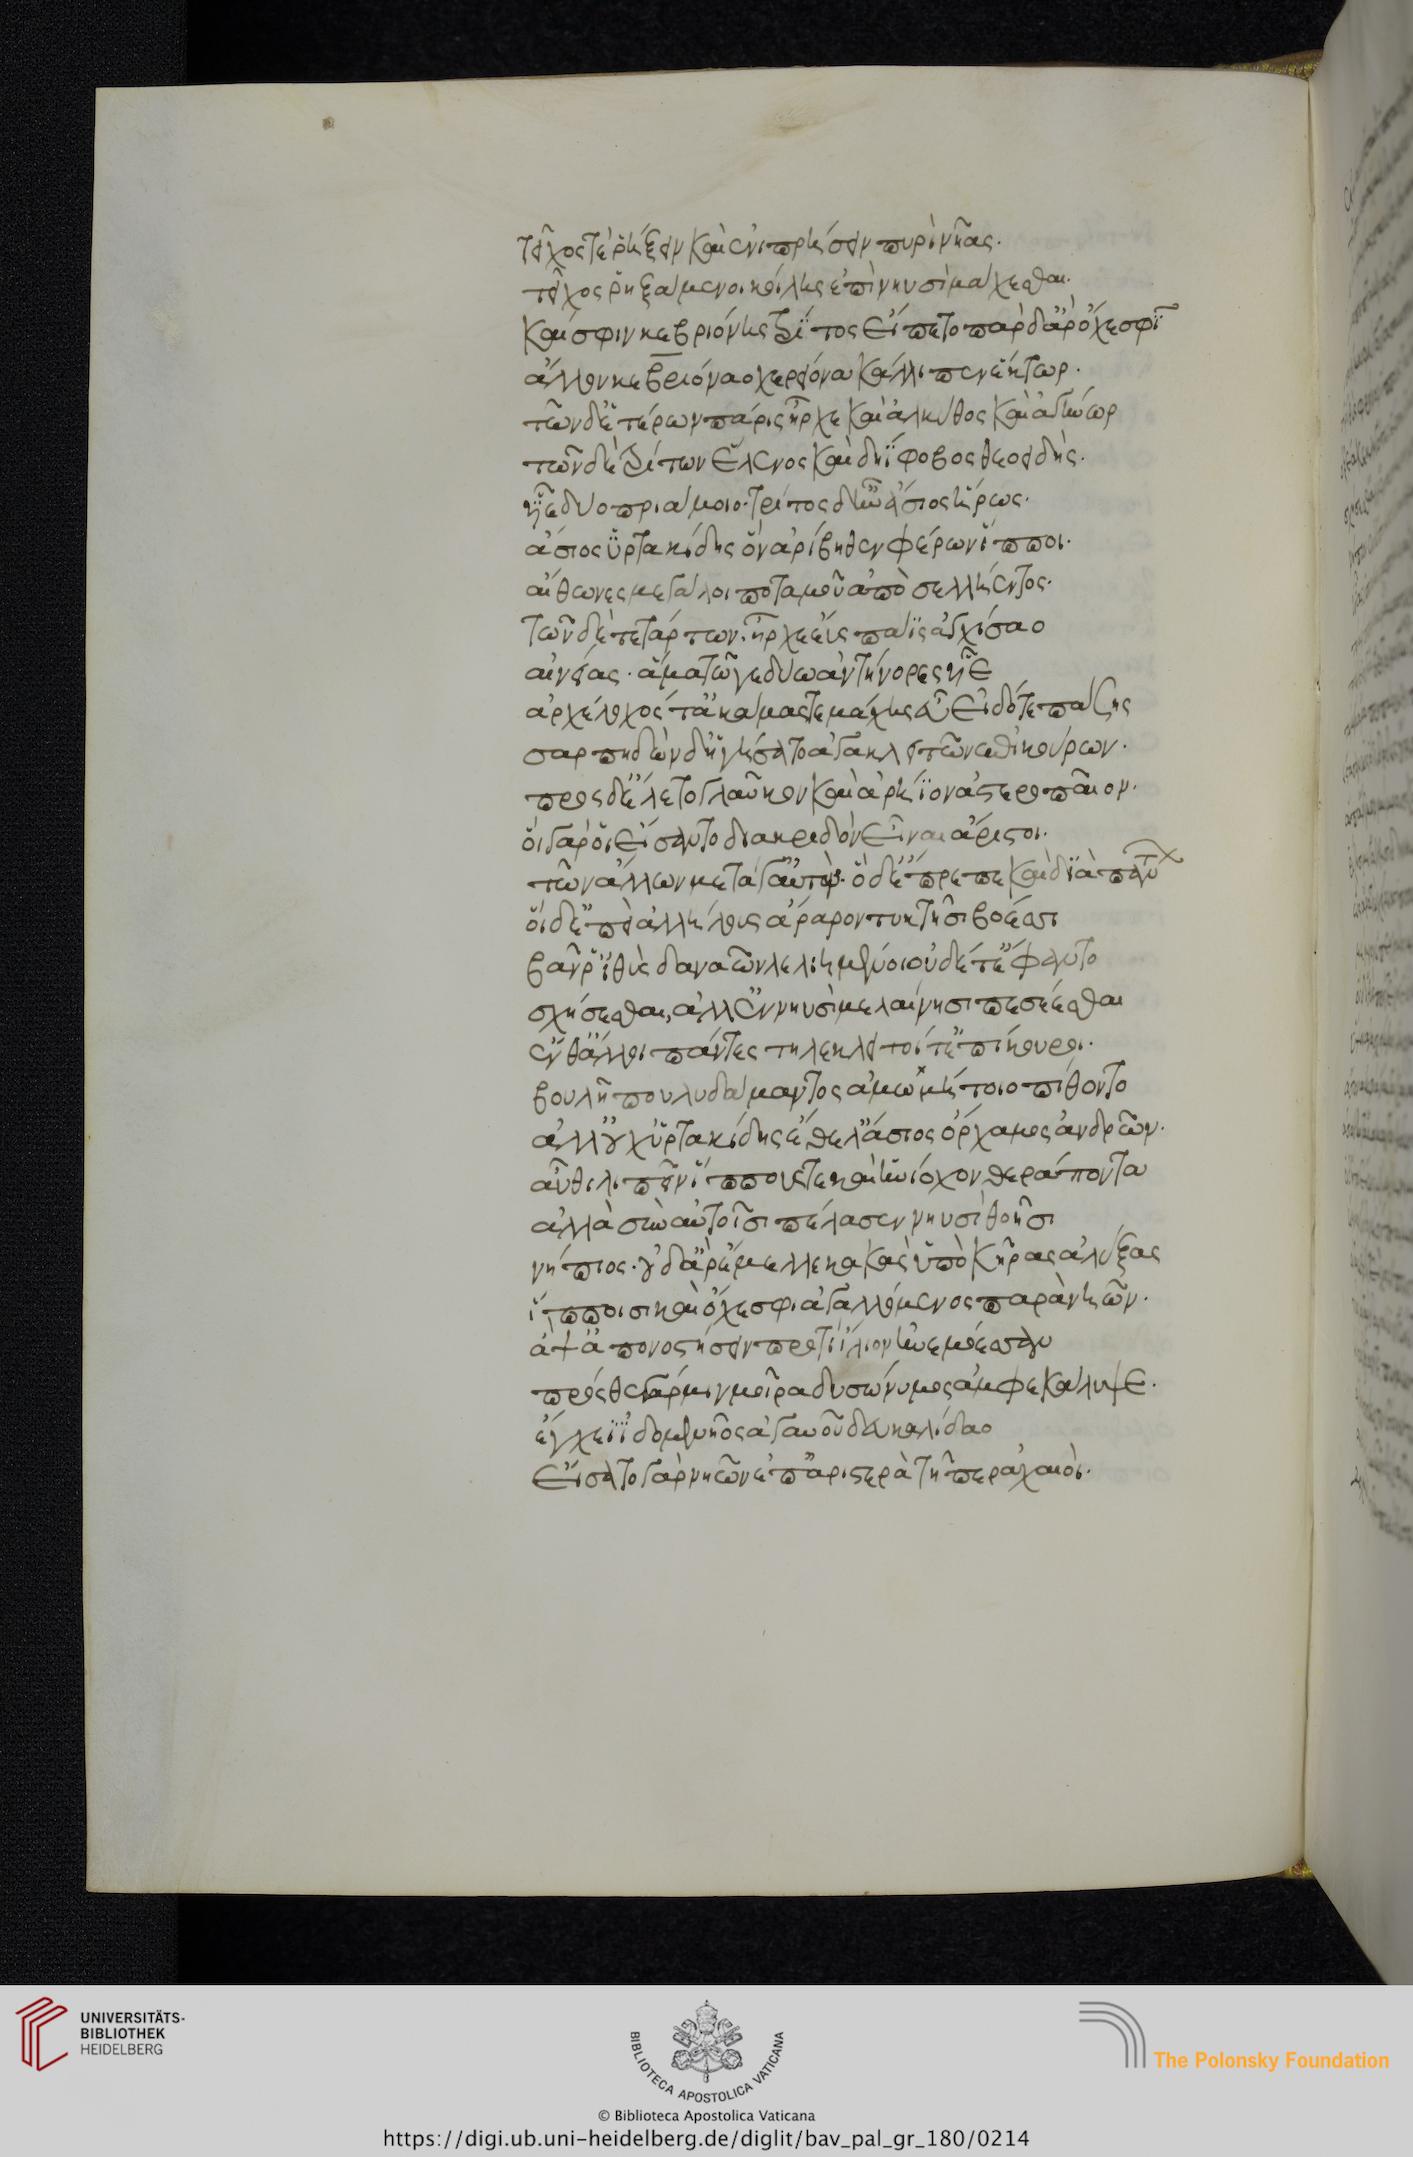 τεῖχός τε ῥήξειν καὶ ἐνιπρήσειν πυρὶ νῆας.
τεῖχος ῥηξάμενοι κοίλης ἐπὶ νηυσὶ μάχεσθαι.
καί σφιν κεβριόνης τρίτος εἵπετο παρ δ' ἄρ ὄχεσφιν
ἄλλον κεβριόναο χερείονα κάλλιπεν ἕκτωρ.
τῶν δ' ἑτέρων πάρις ἦρχε καὶ ἀλκάθοος καὶ ἀγήνωρ
τῶν δὲ τρίτων ἕλενος καὶ δηΐφοβος θεοειδὴς.
υἷε δύο πριάμοιο· τρίτος δ' ἦν ἄσιος ἥρως.
ἄσιος ὑρτακίδης ὃν ἀρίσβηθεν φέρων ἵπποι.
αἴθωνες μεγάλοι ποταμοῦ ἀπὸ σελλήεντος.
τῶν δὲ τετάρτων. ἦρχε ἐῢς παϊς ἀγχίσαο
αἰνείας. ἅμα τῶ γε δύω ἀντήνορος υἷε
ἀρχέλοχός τ' ἀκάμας τε μάχης εὖ εἰδότε πάσης
σαρπηδὼν δ' ἡγήσατο ἀγακλειτῶν ἐπικούρων.
πρὸς δ' ἕλετο γλαῦκον καὶ ἀρήϊον ἀστεροπαῖον.
οἱ γάρ οἱ εἴσαντο διακριδὸν εἶναι ἄριστοι.
τῶν ἄλλων μετά γ' αὐτὸν. ὁ δ' ἔπρεπε καὶ διὰ πάντων
οἱ δ' ἐπεὶ ἀλλήλους ἄραρον τυκτῆσι βόεσσι
βάν ῥ' ἰθὺς δαναῶν λελιημένοι οὐδέ τ' ἔφαντο
σχήσεσθαι, ἀλλ' ἐν νηυσὶ μελαίνησι πεσέεσθαι
ἔνθ' ἄλλοι πάντες τηλεκλειτοί τ' ἐπίκουροι.
βουλῆ πουλυδάμαντος ἀμωμήτοιο πίθοντο
ἀλλ' οὐχ ὑρτακίδης ἔθελ' ἄσιος ὄρχαμος ἀνδρῶν.
αὖθι λιπεῖν ἵππους τε καὶ ἡνίοχον θεράποντα
ἀλλὰ σὺν αὐτοῖσι πέλασεν νηυσὶ θοῆσι
νήπιος. οὐδ' ἄρ ἔμελλε κακὰς ὑπὸ κῆρας ἀλύξας
ἵπποισι καὶ ὄχεσφι ἀγαλλόμενος παρὰ νηῶν.
ἂψ ἀπονοστήσειν προτὶ ἴλιον ἠνεμόεσσαν
πρόσθε γάρ μιν μοῖρα δυσώνυμος ἀμφεκάλυψε.
ἔγχεϊ ἰδομενῆος ἀγαυοῦ δευκαλίδαο
εἴσατο γὰρ νηῶν ἐπ' ἀριστερὰ τῆπερ ἀχαιοὶ.
UNIVERSITÄTS-
BIBLIOTHEK
HEIDELBERG
BIBLIOTECA APOSTOLICA VATICANA
The Polonsky Foundation
© Biblioteca Apostolica Vaticana
https://digi.ub.uni-heidelberg.de/diglit/bav_pal_gr_180/0214